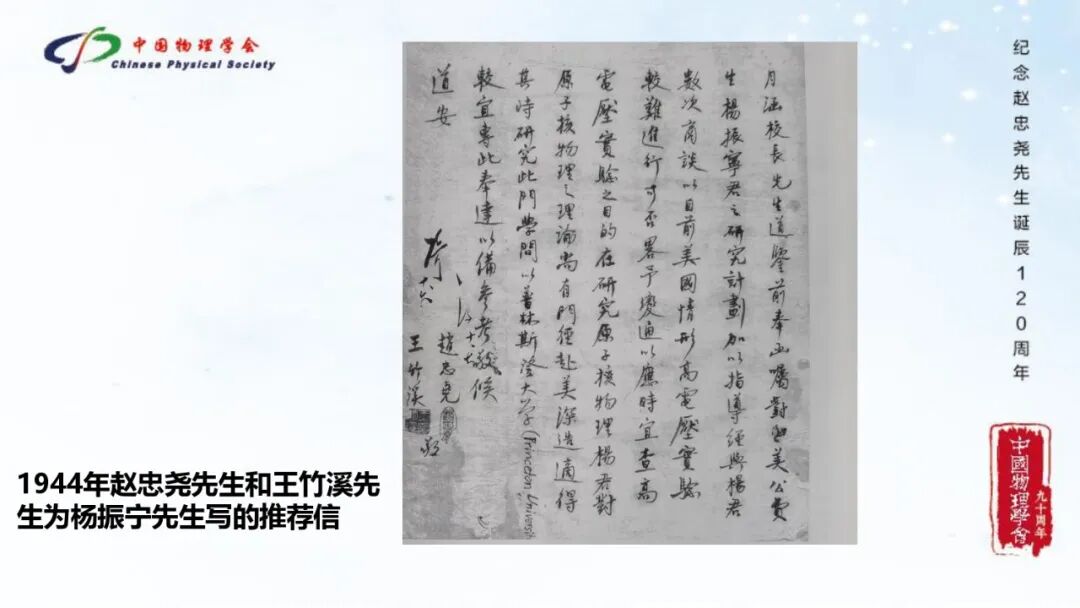 中国物理学会
Chinese Physical Society
纪念赵忠尧先生诞辰120周年
月涵校長先生道鑒前奉函囑對留美公費
生楊振寧君之研究計劃加以指導經與楊君
數次商談以目前美國情形高電壓實驗
較難進行可否畧予變通以應時宜查高
電壓實驗之目的在研究原子核物理楊君對
原子核物理之理論尚有門徑赴美深造適得
其時研究此門學問以普林斯澄大学(Princeton Universit
較宜專此奉達以備參考敬候
道安
趙忠堯
王竹溪
敬
1944年赵忠尧先生和王竹溪先
生为杨振宁先生写的推荐信
中國物理學會
九十周年